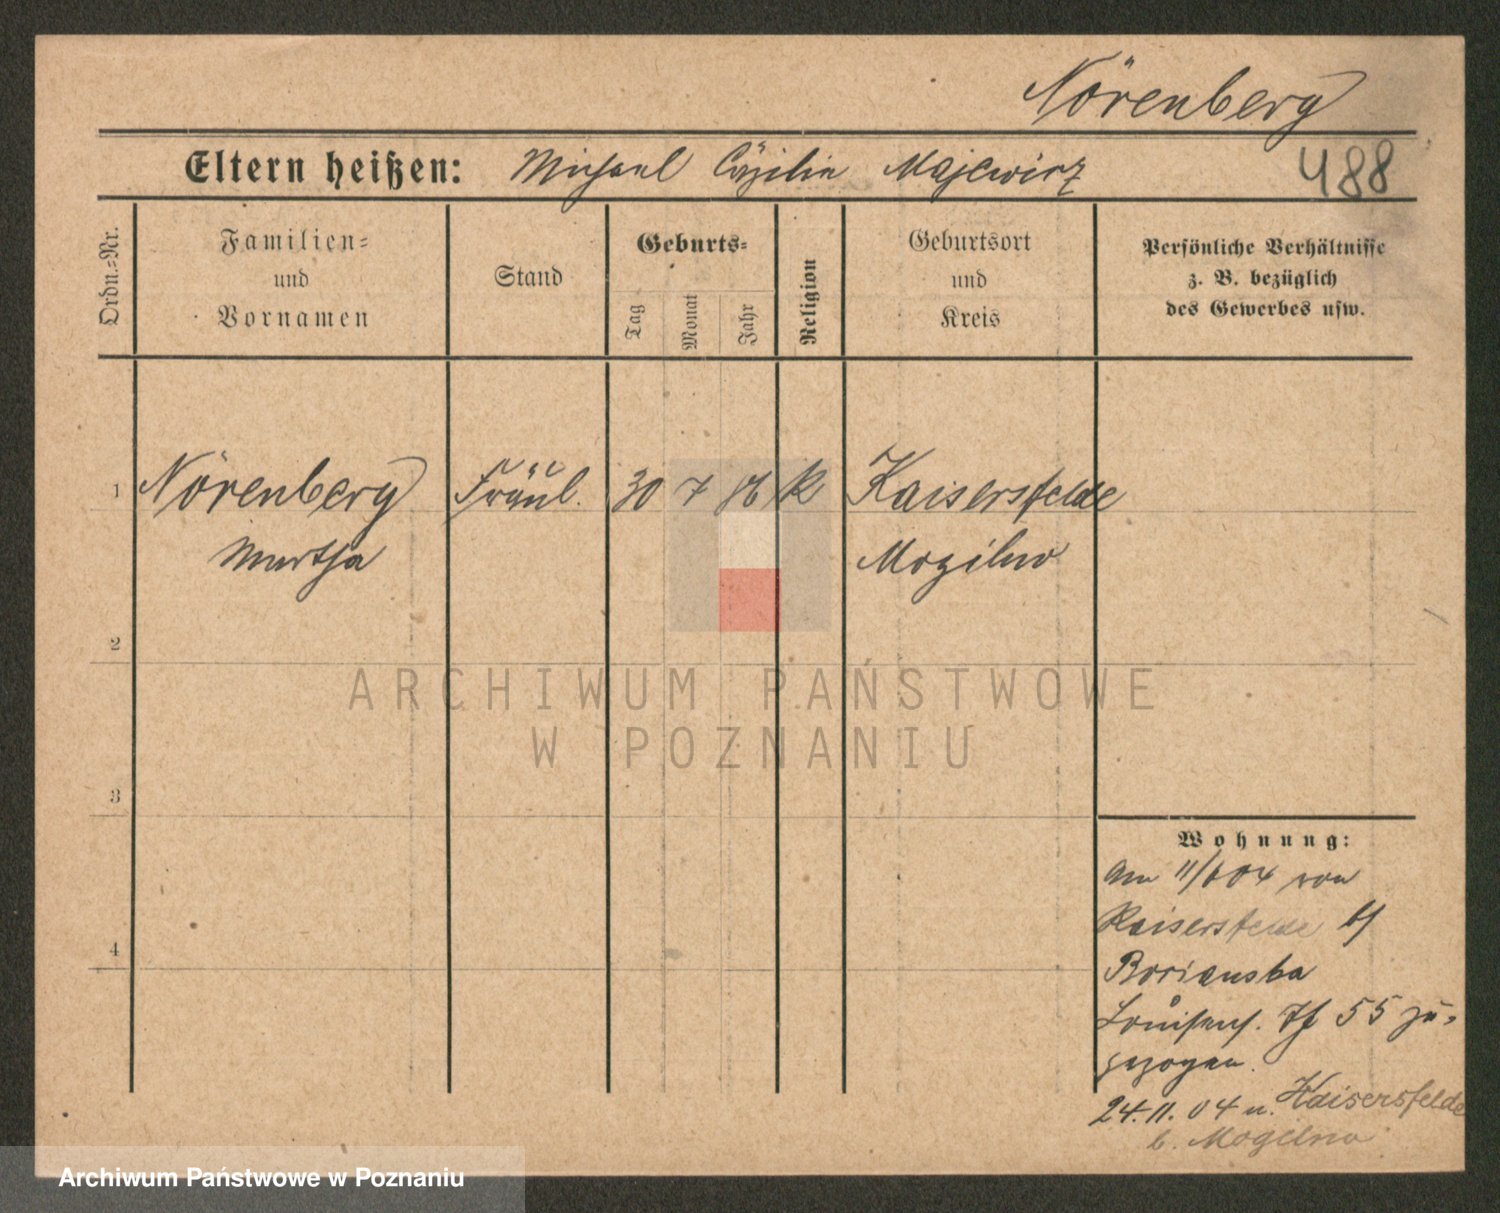 Nörenberg
Eltern heißen: Michael Cäzilie Majewicz
488
Ordn.-Nr.
Familien-
und
Vornamen
Stand
Geburts-
Tag
Monat
Jahr
Religion
Geburtsort
und
Kreis
Persönliche Verhältnisse
z. B. bezüglich
des Gewerbes usw.
1 Nörenberg Fräul. 30 7 86 K Kaisersfelde
Martha Mogilno
2
ARCHIWUM PAŃSTWOWE
W POZNANIU
3
Wohnung:
Am 11/6 04 von
Kaisersfelde b/
4
55 zu-
gezogen.
24.11.04 n. Kaisersfelde
b. Mogilno
Archiwum Państwowe w Poznaniu